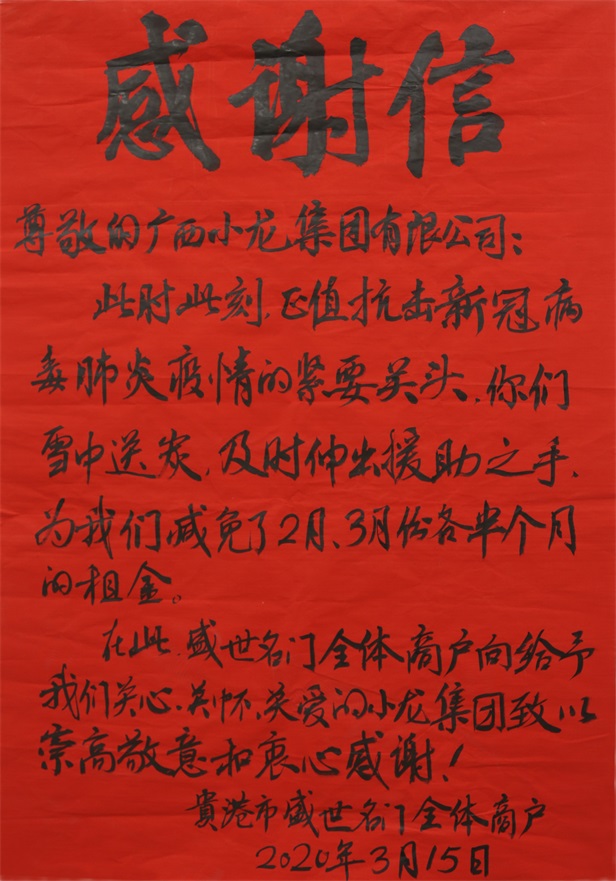 感谢信
尊敬的广西小龙集团有限公司：
此时此刻，正值抗击新冠病
毒肺炎疫情的紧要关头，你们
雪中送炭，及时伸出援助之手，
为我们减免了2月、3月份各半个月
的租金。
在此，盛世名门全体商户向给予
我们关心、关怀、关爱的小龙集团致以
崇高敬意和衷心感谢！
貴港市盛世名门全体商户
2020年3月15日